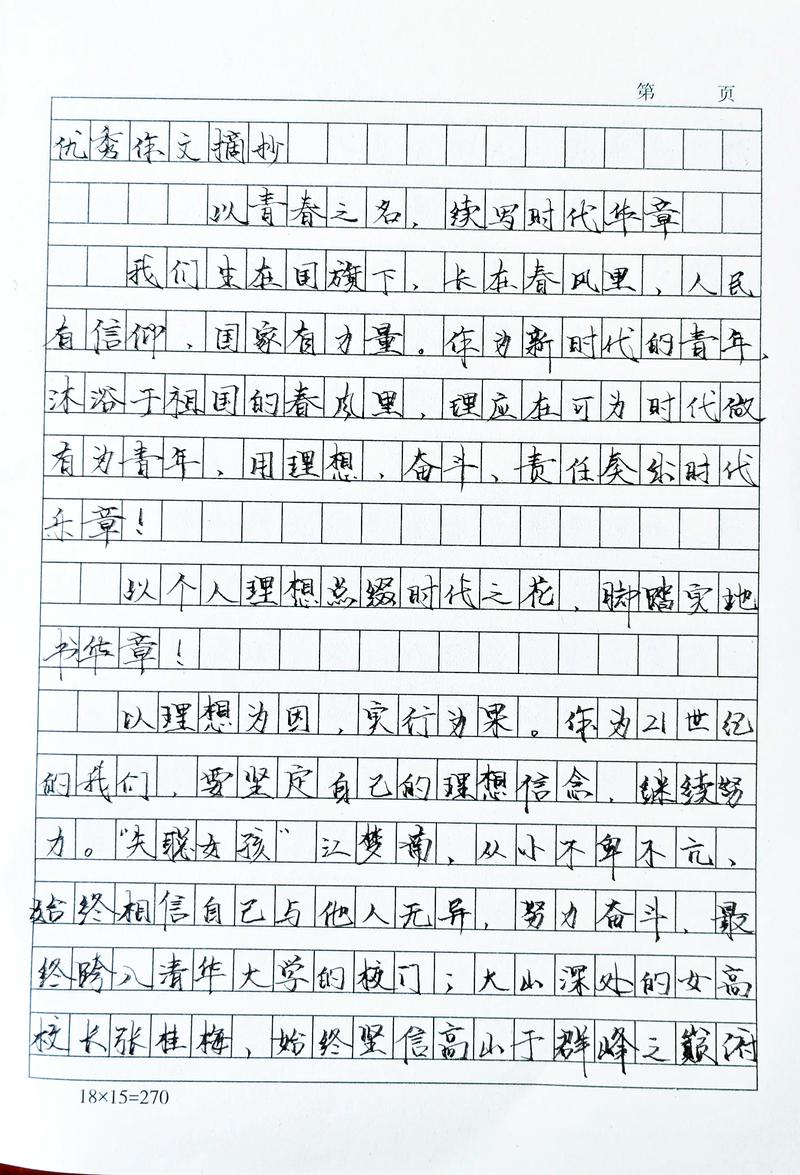 第 页
优秀作文摘抄
以青春之名，续写时代华章
我们生在国旗下，长在春风里，人民
有信仰，国家有力量。作为新时代的青年，
沐浴于祖国的春风里，理应在可为时代做
有为青年，用理想，奋斗，责任奏出时代
乐章！
以个人理想点缀时代之花，脚踏实地
书华章！
以理想为因，实行为果。作为21世纪
的我们，要坚定自己的理想信念，继续努
力。“失聪女孩”江梦南，从小不卑不亢，
始终相信自己与他人无异，努力奋斗，最
终跨入清华大学的校门；大山深处的女高
校长张桂梅，始终坚信高山于群峰之巅俯
18×15=270